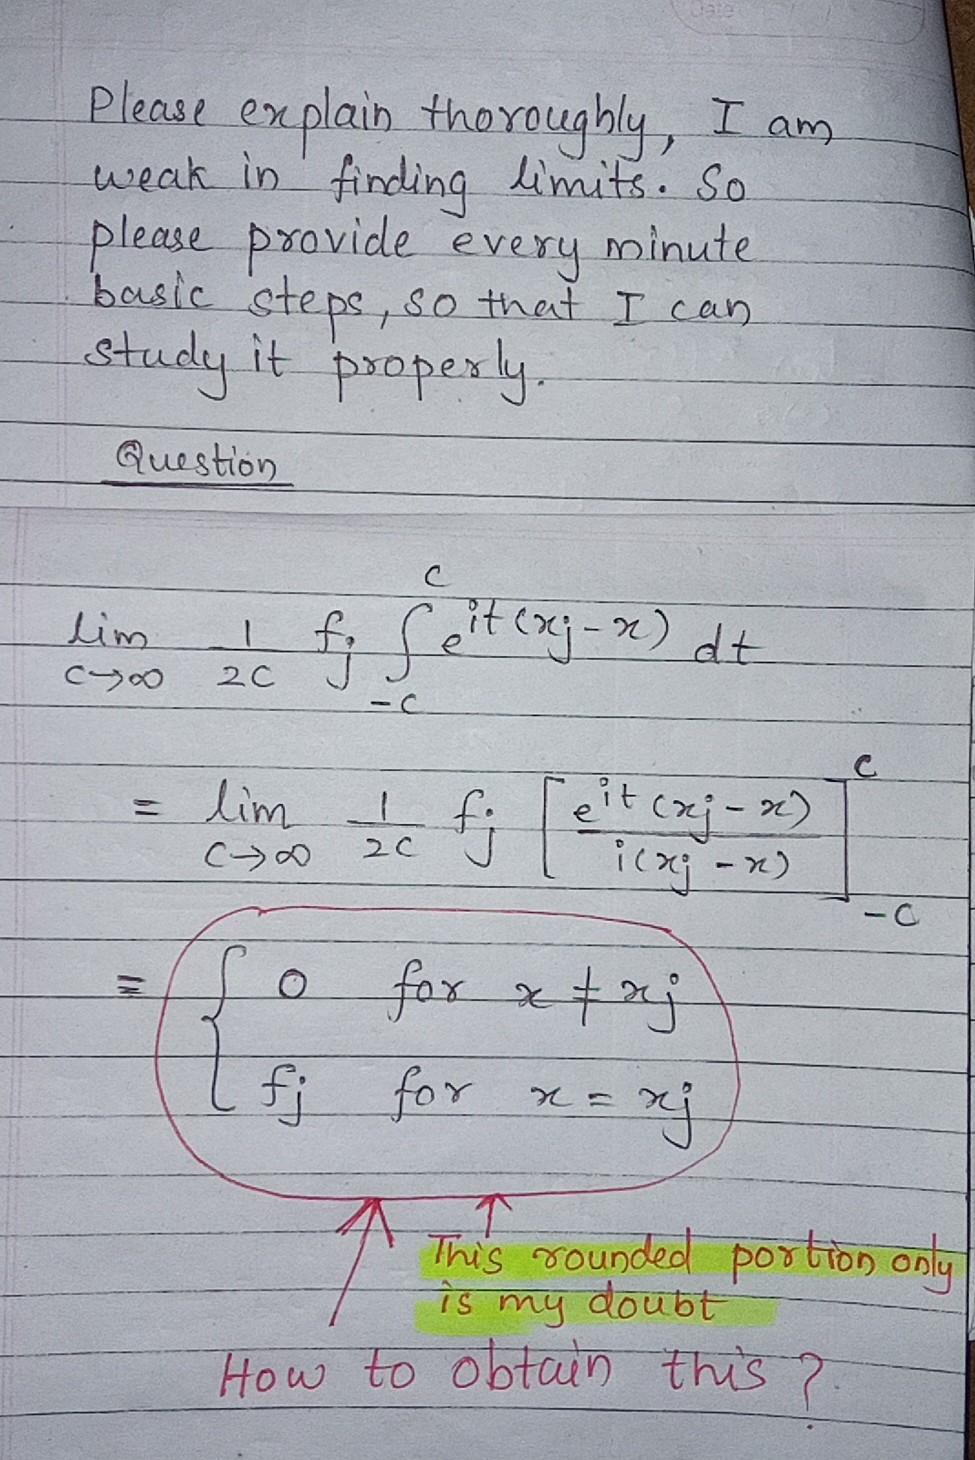 Date
Please explain thoroughly, I am
weak in finding limits. So
please provide every minute
basic steps, so that I can
study it properly.
Question
lim_{c→∞} 1/2c f_j ∫_{-c}^{c} e^{it(x_j - x)} dt
= lim_{c→∞} 1/2c f_j [ e^{it(x_j - x)} / i(x_j - x) ]_{-c}^{c}
= { 0 for x ≠ x_j
f_j for x = x_j
This rounded portion only
is my doubt
How to obtain this ?